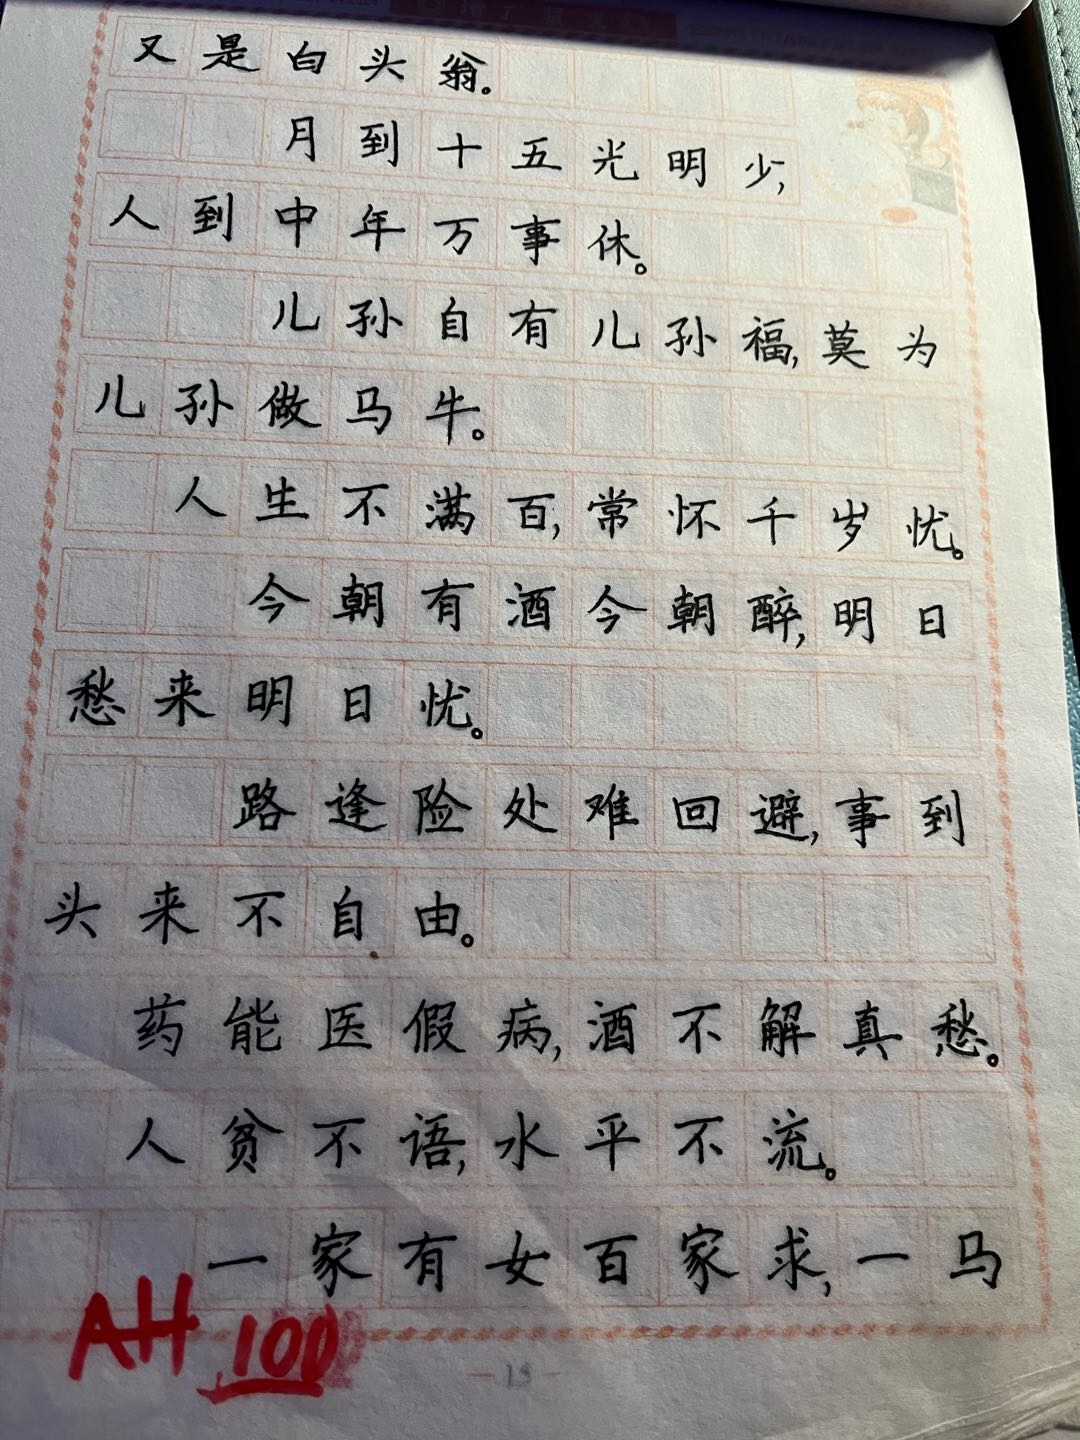 又是白头翁。
月到十五光明少,
人到中年万事休。
儿孙自有儿孙福,莫为
儿孙做马牛。
人生不满百,常怀千岁忧。
今朝有酒今朝醉,明日
愁来明日忧。
路逢险处难回避,事到
头来不自由。
药能医假病,酒不解真愁。
人贫不语,水平不流。
一家有女百家求,一马
AH 100
— 15 —